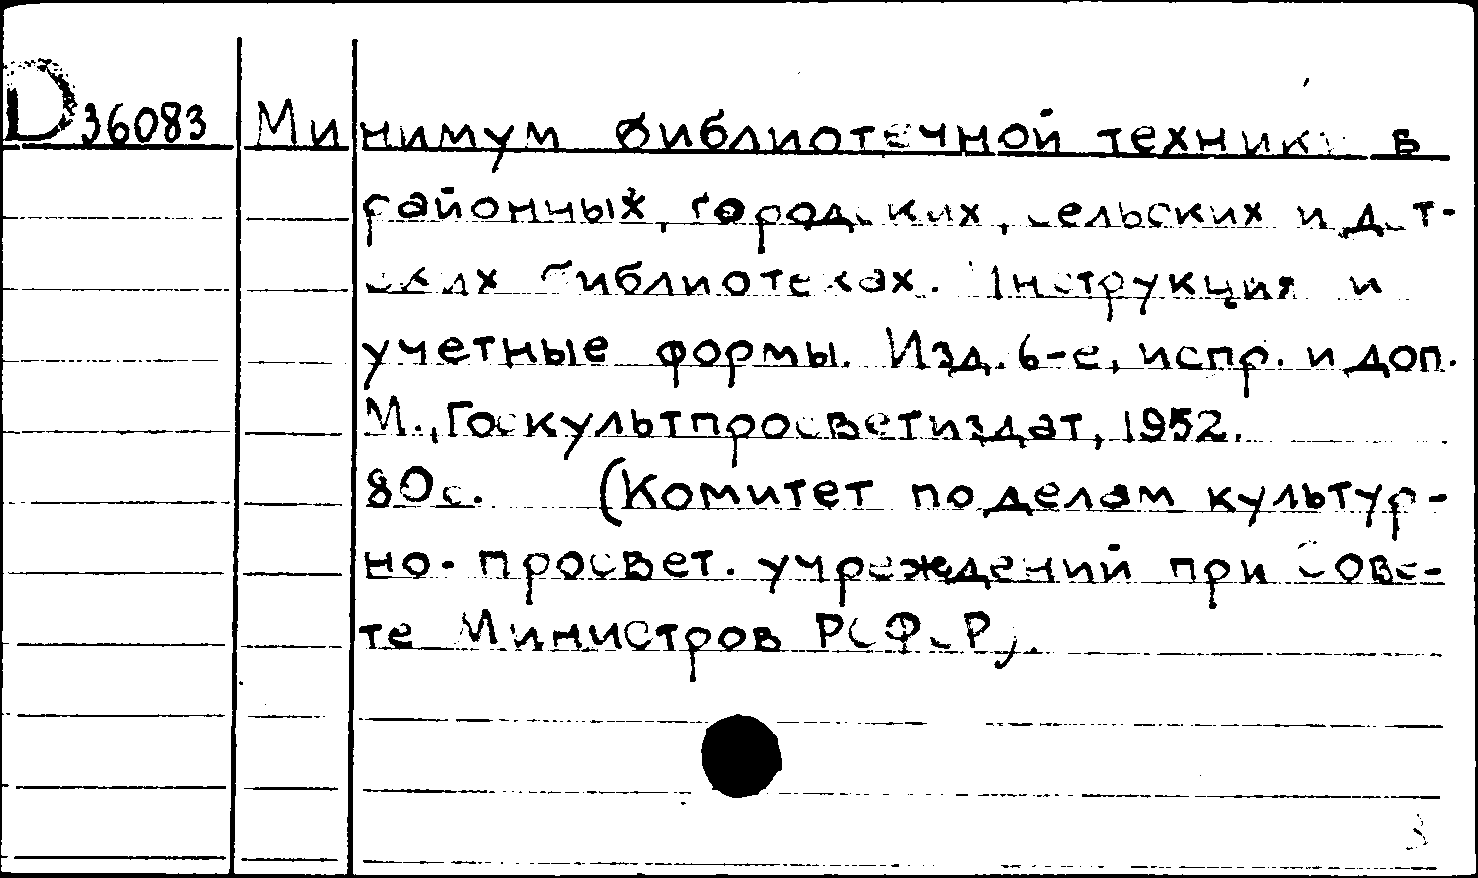 D36083 Минимум библиотечной техники в
районных, городских, сельских и дет-
ских библиотеках. Инструкция и
учетные формы. Изд. 6-е, испр. и доп.
М., Госкультпросветиздат, 1952.
80с. (Комитет по делам культур-
но-просвет. учреждений при Сове-
те Министров РСФСР).
3